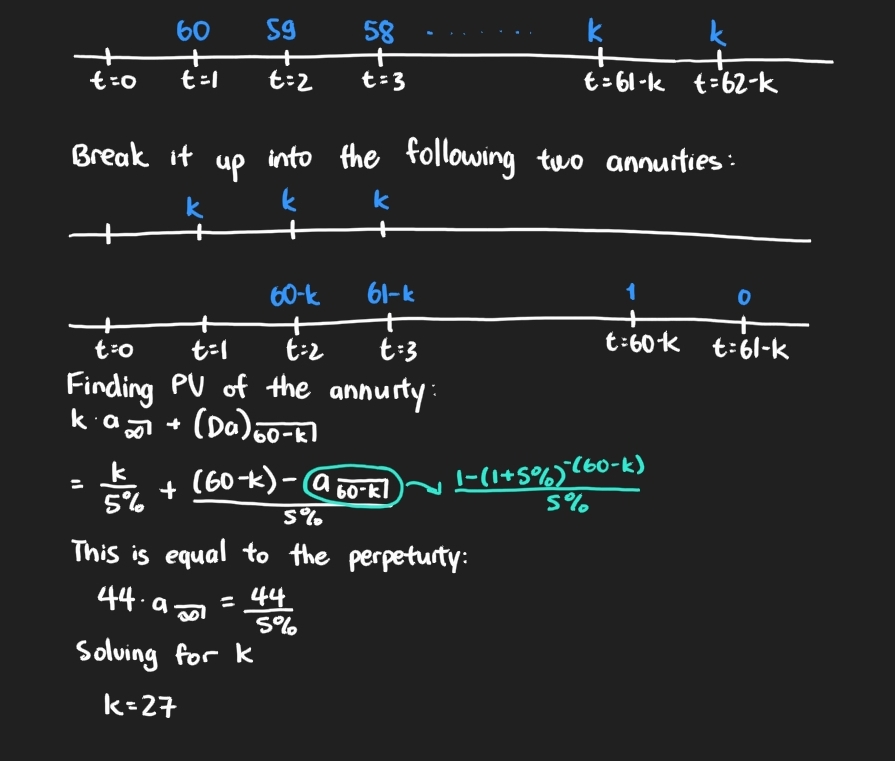 60 59 58 ········ k k
t=0 t=1 t=2 t=3 t=61-k t=62-k
Break it up into the following two annuities:
k k k
60-k 61-k 1 0
t=0 t=1 t=2 t=3 t=60-k t=61-k
Finding PV of the annuity:
k·a∞⌉ + (Da)60-k⌉
= k/5% + ((60-k) - a60-k⌉)/5% → (1-(1+5%)^-(60-k))/5%
This is equal to the perpetuity:
44·a∞⌉ = 44/5%
Solving for k
k=27